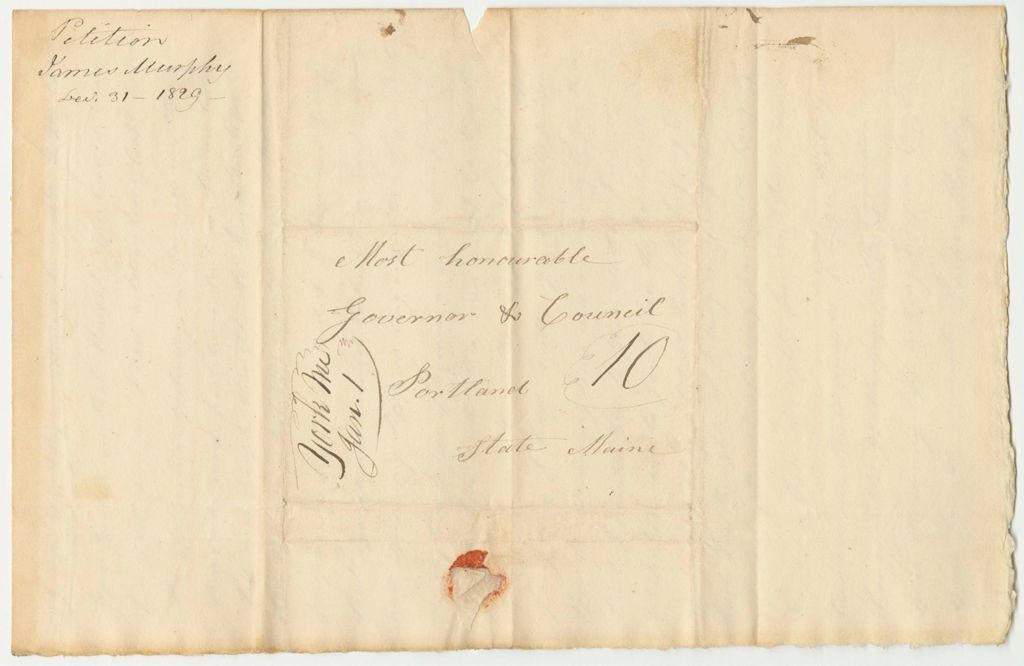 Petition
James Murphy
Dec. 31 - 1829 -
Most honourable
Governor & Council
10
Portland
State Maine
York Me
Jan. 1